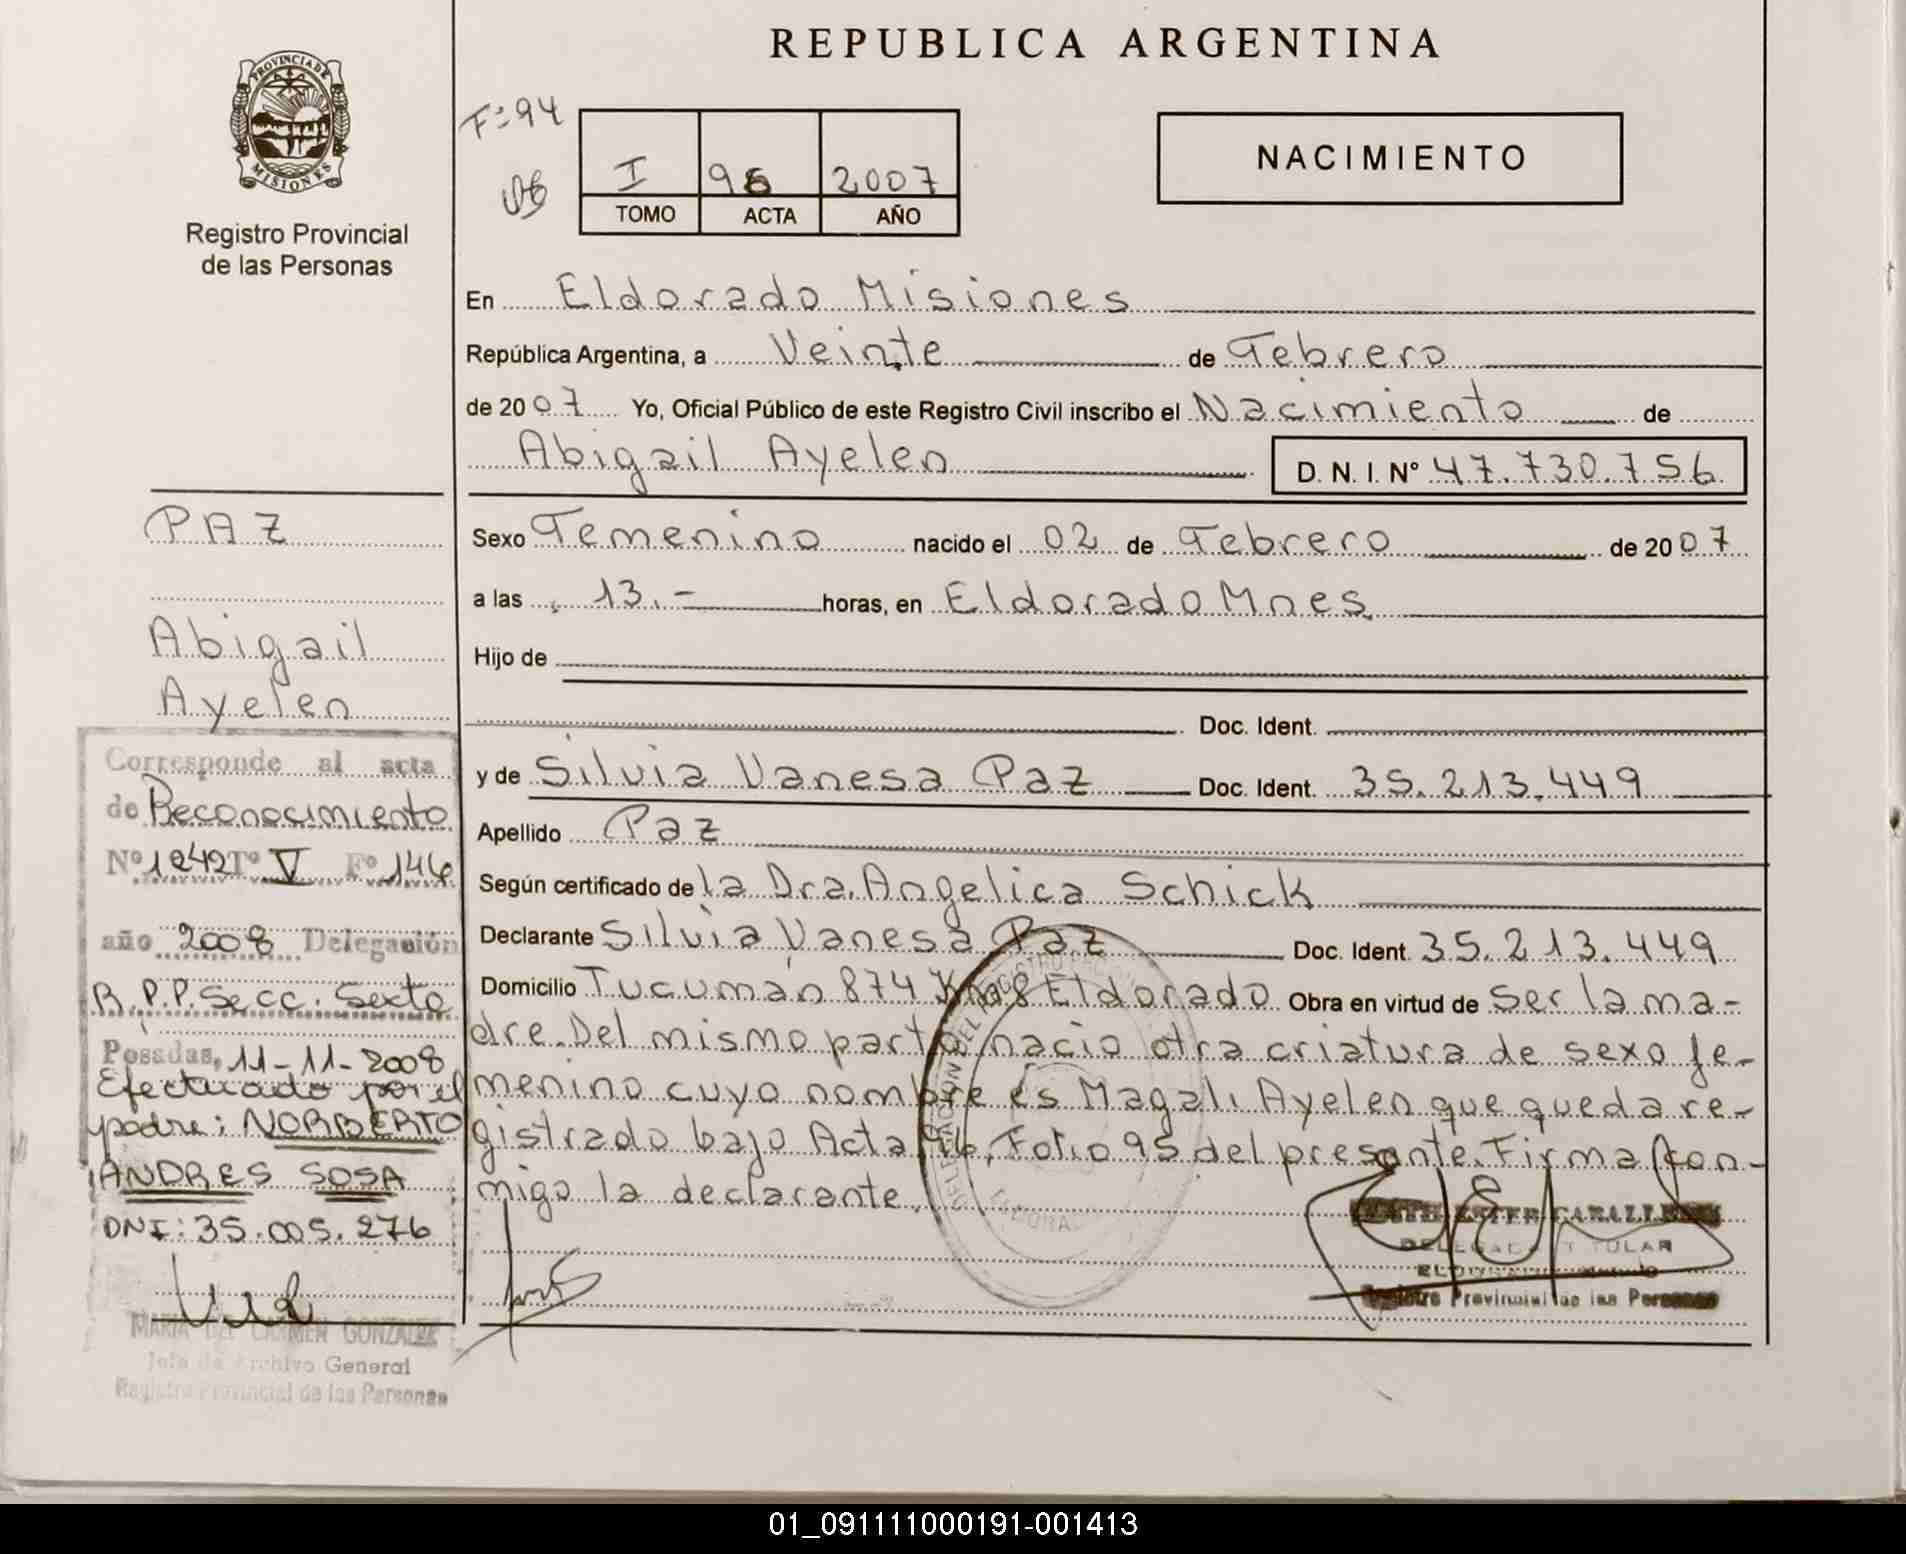 REPUBLICA ARGENTINA
PROVINCIA DE
MISIONES
Registro Provincial
de las Personas
F=94
I 2007
TOMO ACTA AÑO
NACIMIENTO
En Eldorado Misiones
República Argentina, a Veinte de Febrero
de 2007 Yo, Oficial Público de este Registro Civil inscribo el Nacimiento de
Abigail Ayelen D. N. I. Nº 47.730.756
Sexo Femenino nacido el 02 de Febrero de 2007
a las 13.- horas, en Eldorado Mnes.
Hijo de
Doc. Ident.
y de Silvia Vanesa Paz Doc. Ident. 35.213.449
Apellido Paz
Según certificado de la Dra. Angelica Schick
Declarante Silvia Vanesa Paz Doc. Ident. 35.213.449
Domicilio Tucumán 874 Km 8 Eldorado Obra en virtud de ser la ma-
dre. Del mismo parto nacio otra criatura de sexo fe-
menino cuyo nombre es Magali Ayelen que queda re-
gistrado bajo Acta 96, Folio 95 del presente. Firma con-
migo la declarante.
PAZ
Abigail
Ayelen
Corresponde al acta
de Reconocimiento
Nº 1242 Tº V Fº 146
año 2008 Delegación
R.P.P. Secc. Sexta
Posadas, 11-11-2008
Efectuado por el
padre: NORBERTO
ANDRES SOSA
DNI: 35.005.276
MARIA DEL CARMEN GONZALEZ
Jefa de Archivo General
Registro Provincial de las Personas
ESTER
DELEGADA TITULAR
ELDORADO
Registro Provincial de las Personas
01_091111000191-001413